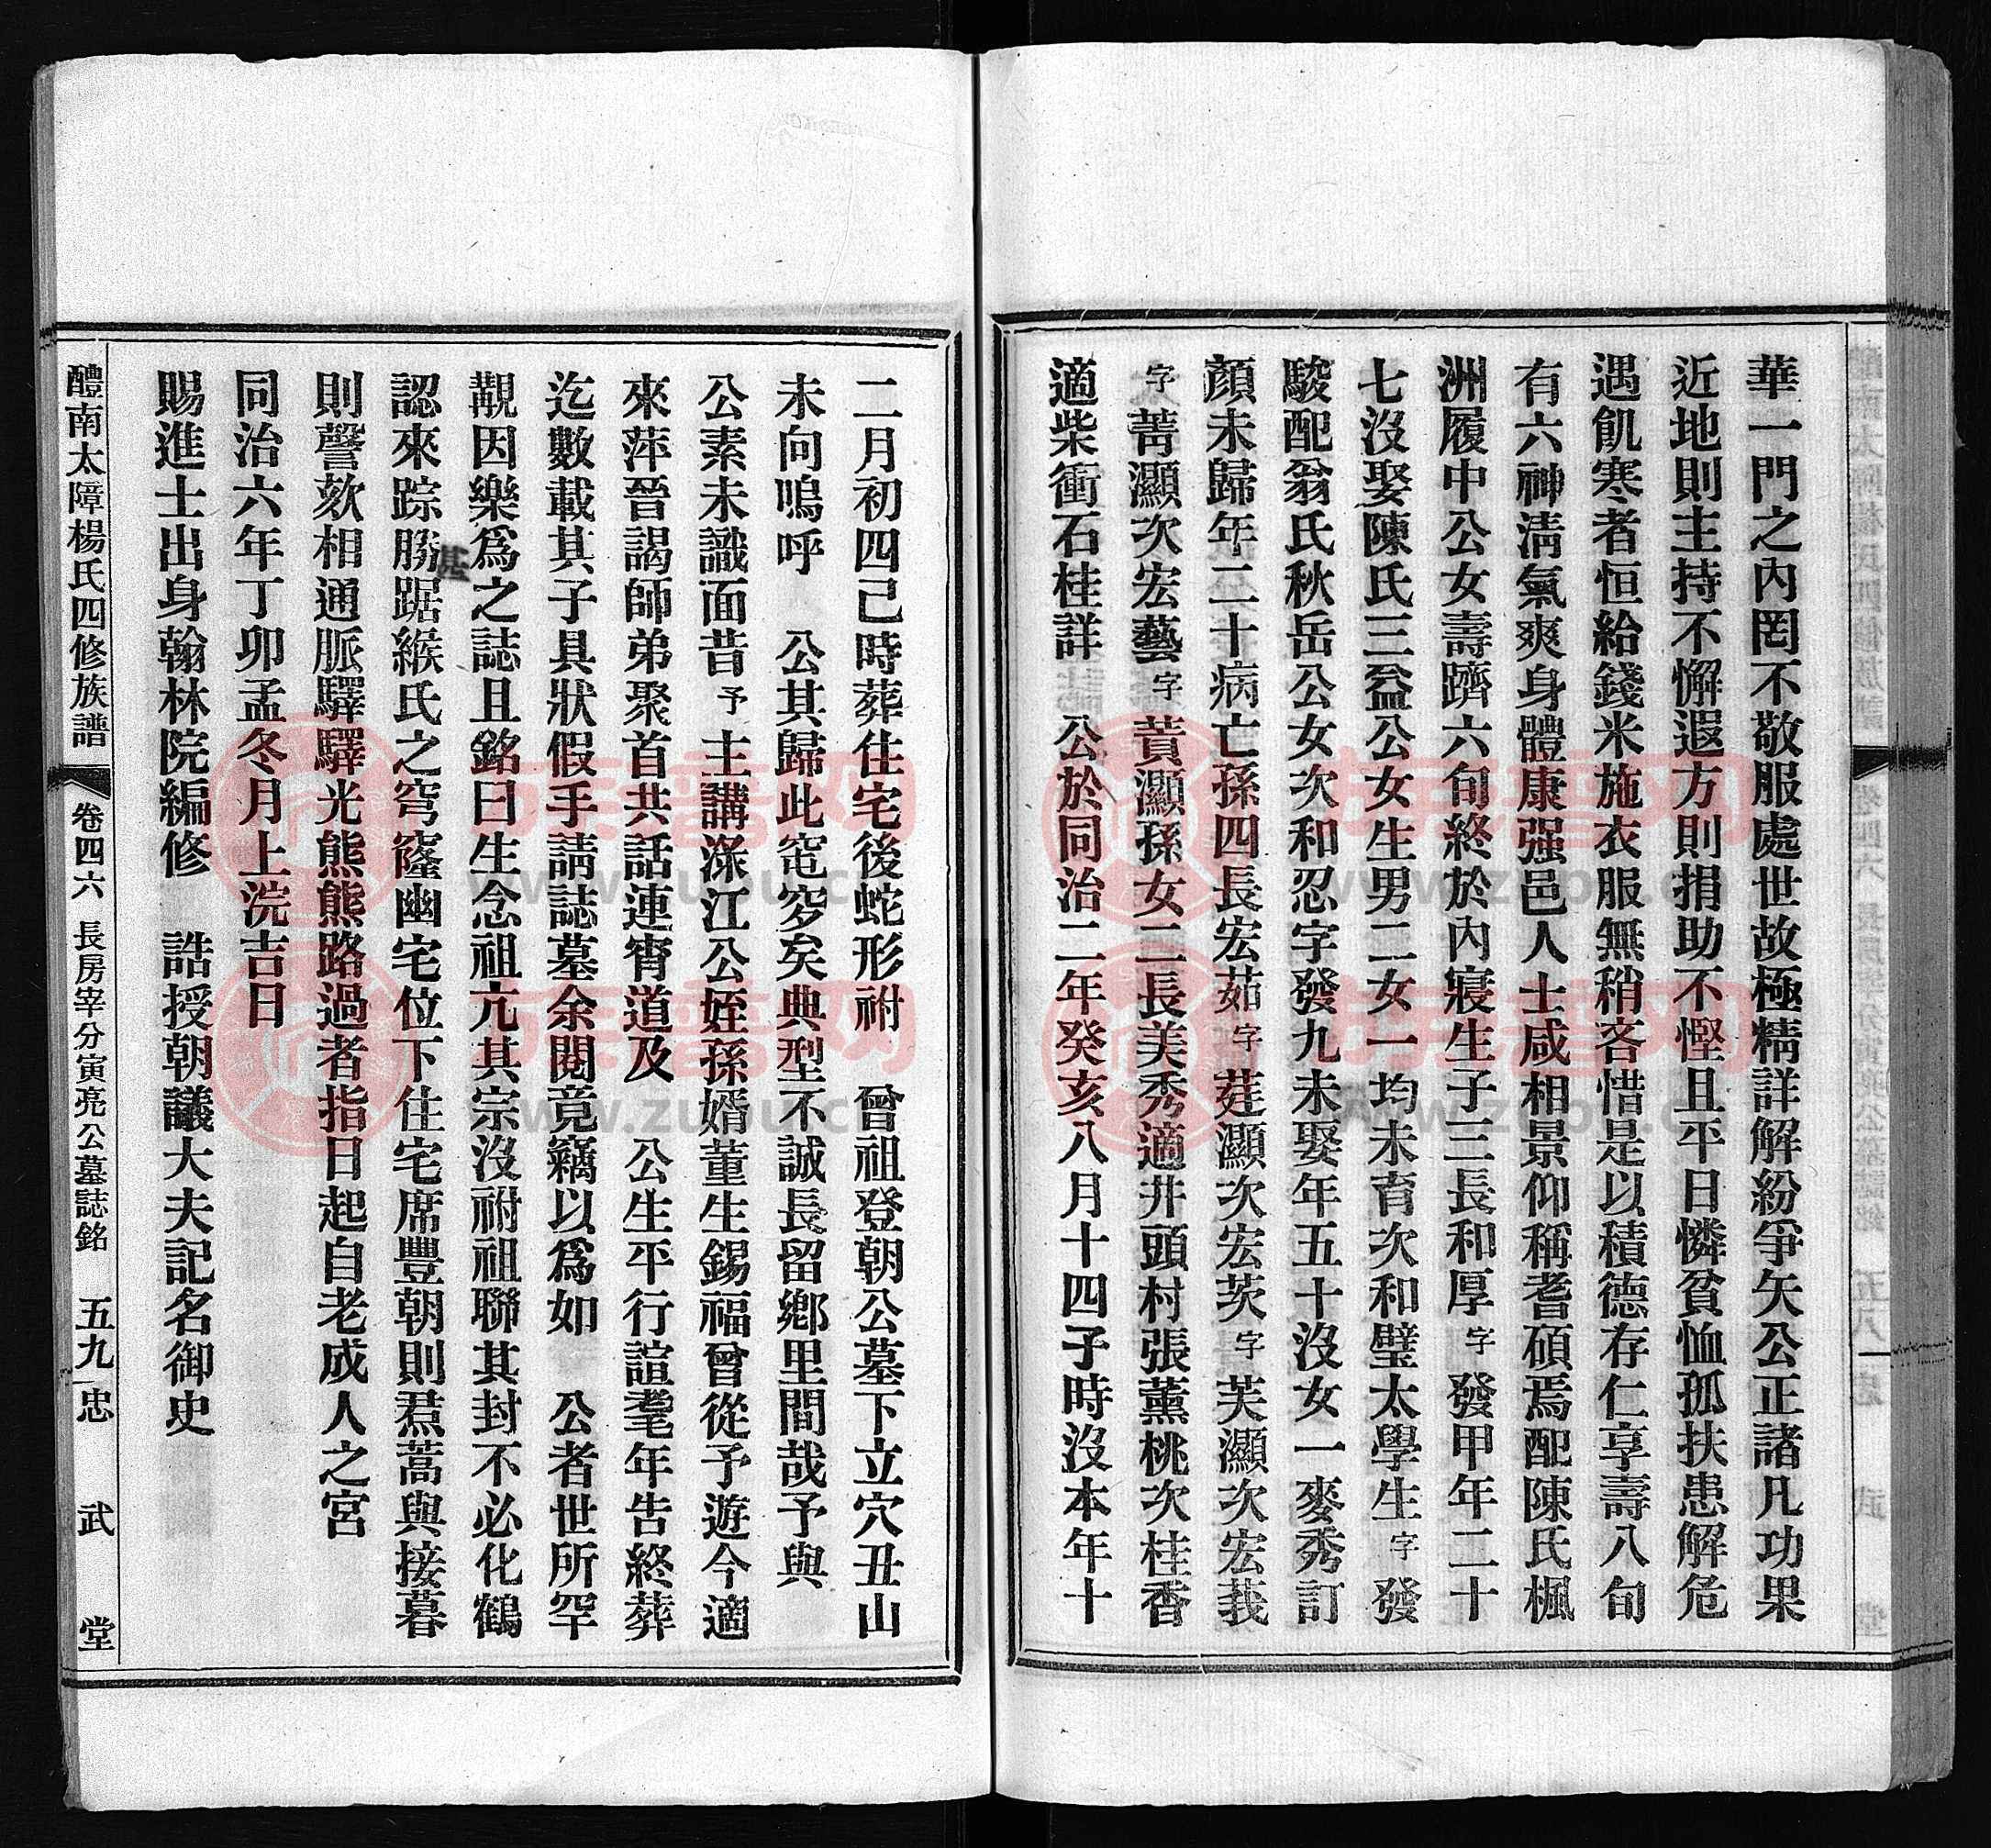 華一門之內罔不敬服處世故極精詳解紛爭矢公正諸凡功果
近地則主持不懈遐方則捐助不慳且平日憐貧恤孤扶患解危
遇飢寒者恒給錢米施衣服無稍吝惜是以積德存仁享壽八旬
有六神淸氣爽身體康强邑人士咸相景仰稱耆碩焉配陳氏楓
洲履中公女壽躋六旬終於內寢生子三長和厚字發甲年二十
七沒娶陳氏三益公女生男二女一均未育次和璧太學生字發
駿配翁氏秋岳公女次和忍字發九未娶年五十沒女一麥秀訂
顏未歸年二十病亡孫四長宏茹字莛灝次宏茨字芙灝次宏莪
字菁灝次宏藝字蕡灝孫女二長美秀適井頭村張薰桃次桂香
適柴衝石桂詳 公於同治二年癸亥八月十四子時沒本年十
二月初四己時葬住宅後蛇形祔 曾祖登朝公墓下立穴丑山
未向嗚呼 公其歸此窀穸矣典型不誠長留鄕里間哉予與
公素未識面昔予主講淥江公姪孫婿董生錫福曾從予遊今適
來萍晉謁師弟聚首共話連宵道及 公生平行誼耄年告終葬
迄數載其子具狀假手請誌墓余閱竟竊以爲如 公者世所罕
覯因樂爲之誌且銘曰生念祖亢其宗沒祔祖聯其封不必化鶴
認來踪勝踞緱氏之穹窿幽宅位下住宅席豐朝則焄蒿與接暮
則謦欬相通脈驛驛光熊熊路過者指日起自老成人之宮
同治六年丁卯孟冬月上浣吉日
賜進士出身翰林院編修 誥授朝議大夫記名御史
醴南太障楊氏四修族譜 卷四六 長房宰分寅亮公墓誌銘 五九 忠武堂
www.zupu.cn